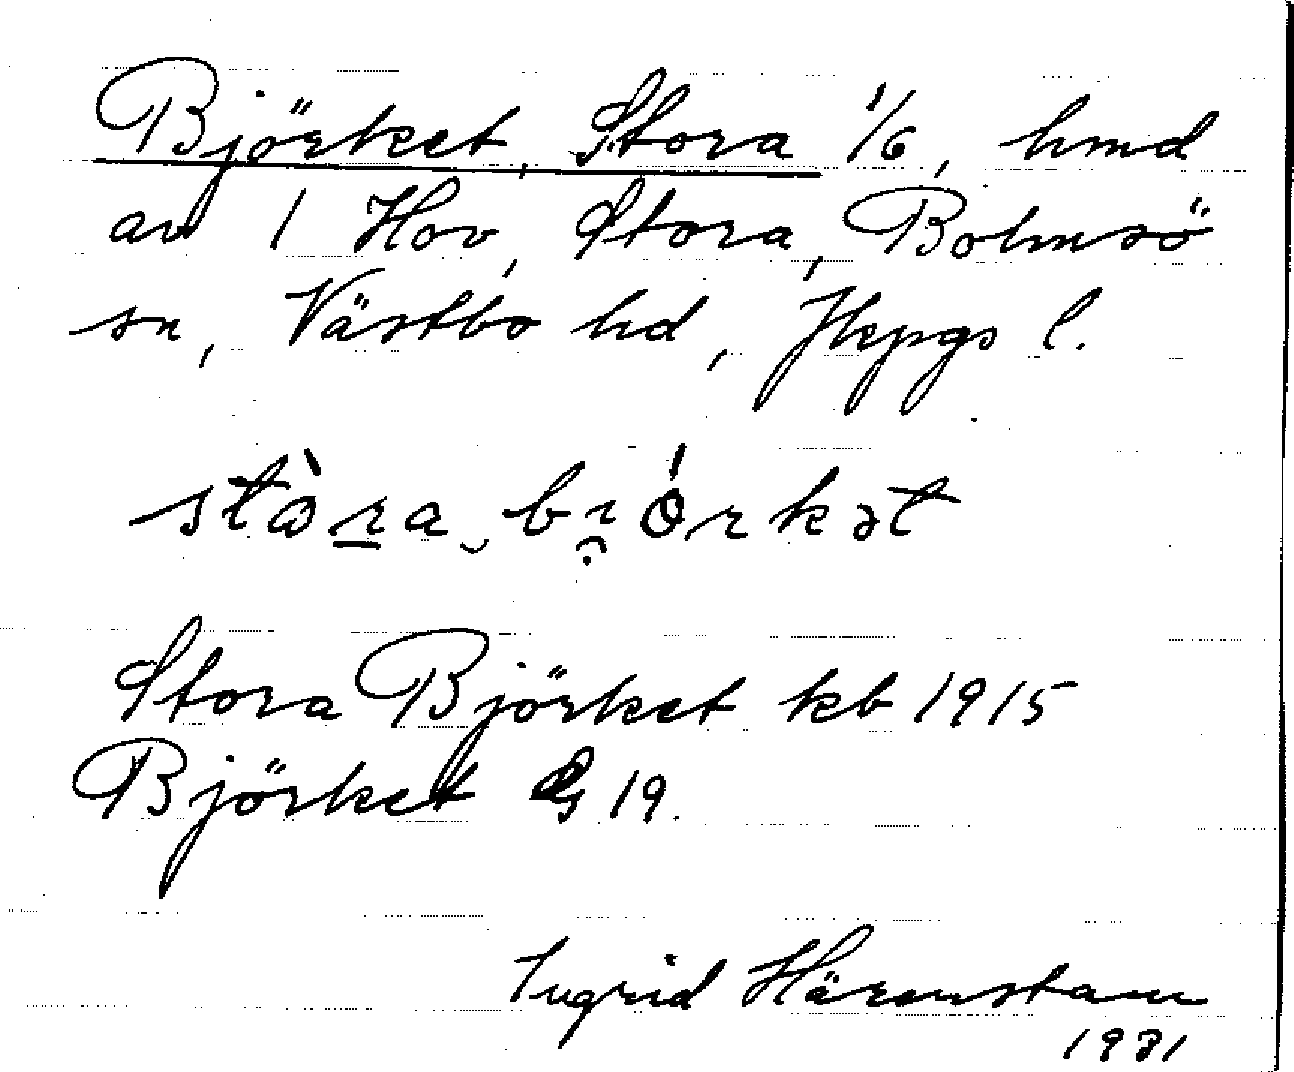 Björket, Stora 1/6, hmd
av 1 Hov, Stora, Bolmsö
sn, Västbo hd, Jkpgs l.
stòra bi̯órkət
Stora Björket kb 1915
Björket GS 19.
Ingrid Härenstam
1931